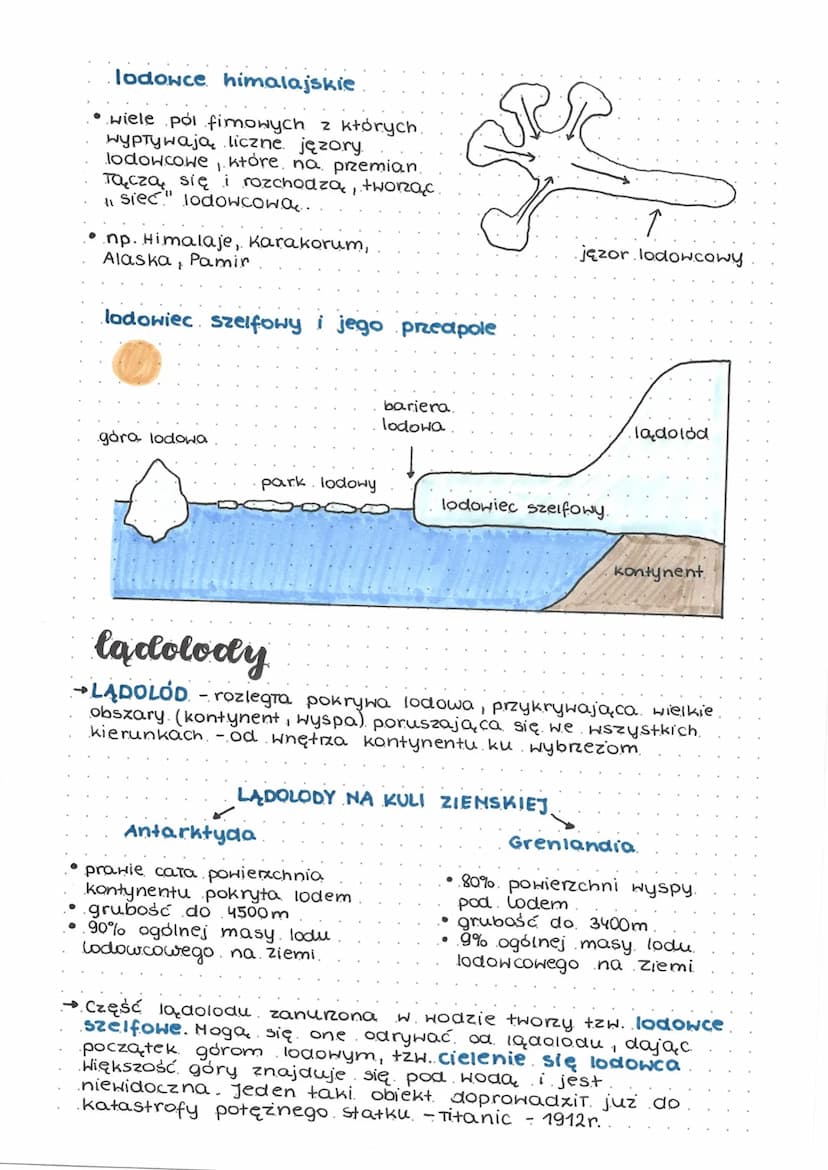 lodowce himalajskie
• wiele pól firnowych z których
wypływają liczne jęzory
lodowcowe, które na przemian
łączą się i rozchodzą, tworząc
„sieć" lodowcową.
• np. Himalaje, Karakorum,
Alaska, Pamir
jęzor lodowcowy
lodowiec szelfowy i jego przedpole
bariera
lodowa
lądolód
góra lodowa
park lodowy
lodowiec szelfowy
kontynent
lądolody
→ LĄDOLÓD - rozległa pokrywa lodowa, przykrywająca wielkie
obszary (kontynent, wyspa) poruszająca się we wszystkich
kierunkach - od wnętrza kontynentu ku wybrzeżom
LĄDOLODY NA KULI ZIEMSKIEJ
Antarktyda
• prawie cała powierzchnia
kontynentu pokryta lodem
• grubość do 4500m
• 90% ogólnej masy lodu
lodowcowego na ziemi
Grenlandia
• 80% powierzchni wyspy
pod lodem
• grubość do 3400m
• 9% ogólnej masy lodu
lodowcowego na ziemi
→ Część lądolodu zanurzona w wodzie tworzy tzw. lodowce
szelfowe. Mogą się one odrywać od lądolodu, dając
początek górom lodowym, tzw. cielenie się lodowca
Większość góry znajduje się pod wodą i jest
niewidoczna. Jeden taki obiekt doprowadził już do
katastrofy potężnego statku - Titanic - 1912r.